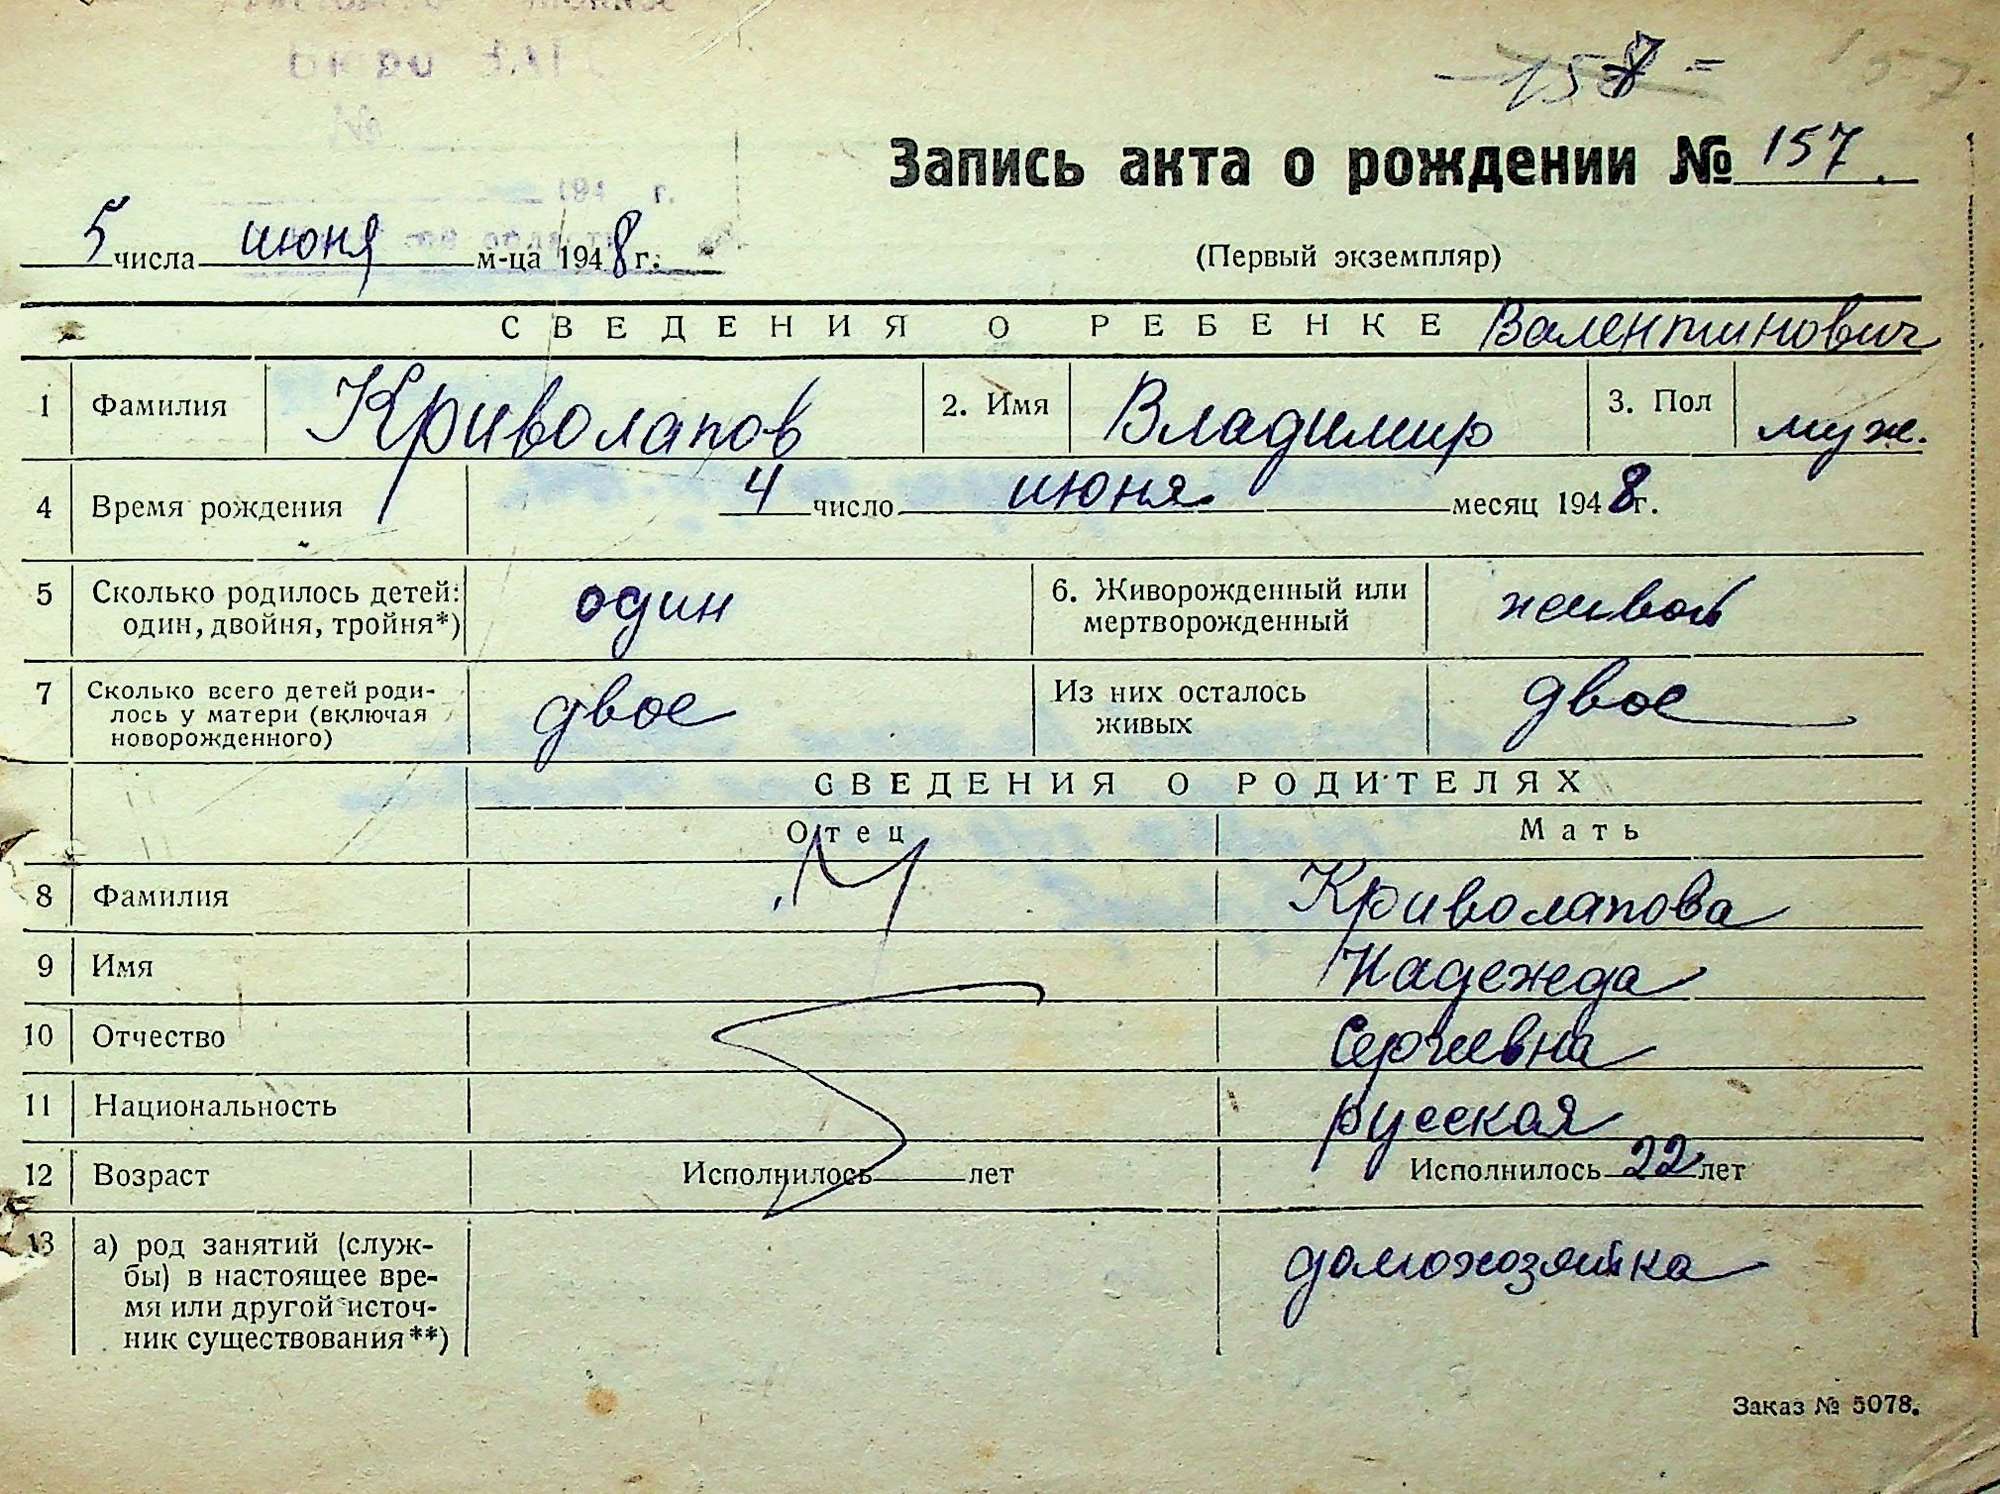 157 =
157
Запись акта о рождении № 157.
5 числа июня м-ца 1948 г.
(Первый экземпляр)
СВЕДЕНИЯ О РЕБЕНКЕ Валентинович
1 Фамилия Криволапов 2. Имя Владимир 3. Пол муж.
4 Время рождения 4 число июня месяц 1948 г.
5 Сколько родилось детей: один 6. Живорожденный или живой
один, двойня, тройня*) мертворожденный
7 Сколько всего детей роди- двое Из них осталось двое
лось у матери (включая живых
новорожденного)
СВЕДЕНИЯ О РОДИТЕЛЯХ
Отец Мать
8 Фамилия Криволапова
9 Имя Надежда
10 Отчество Сергеевна
11 Национальность русская
12 Возраст Исполнилось лет Исполнилось 22 лет
13 а) род занятий (служ- домохозяйка
бы) в настоящее вре-
мя или другой источ-
ник существования**)
Заказ № 5078.